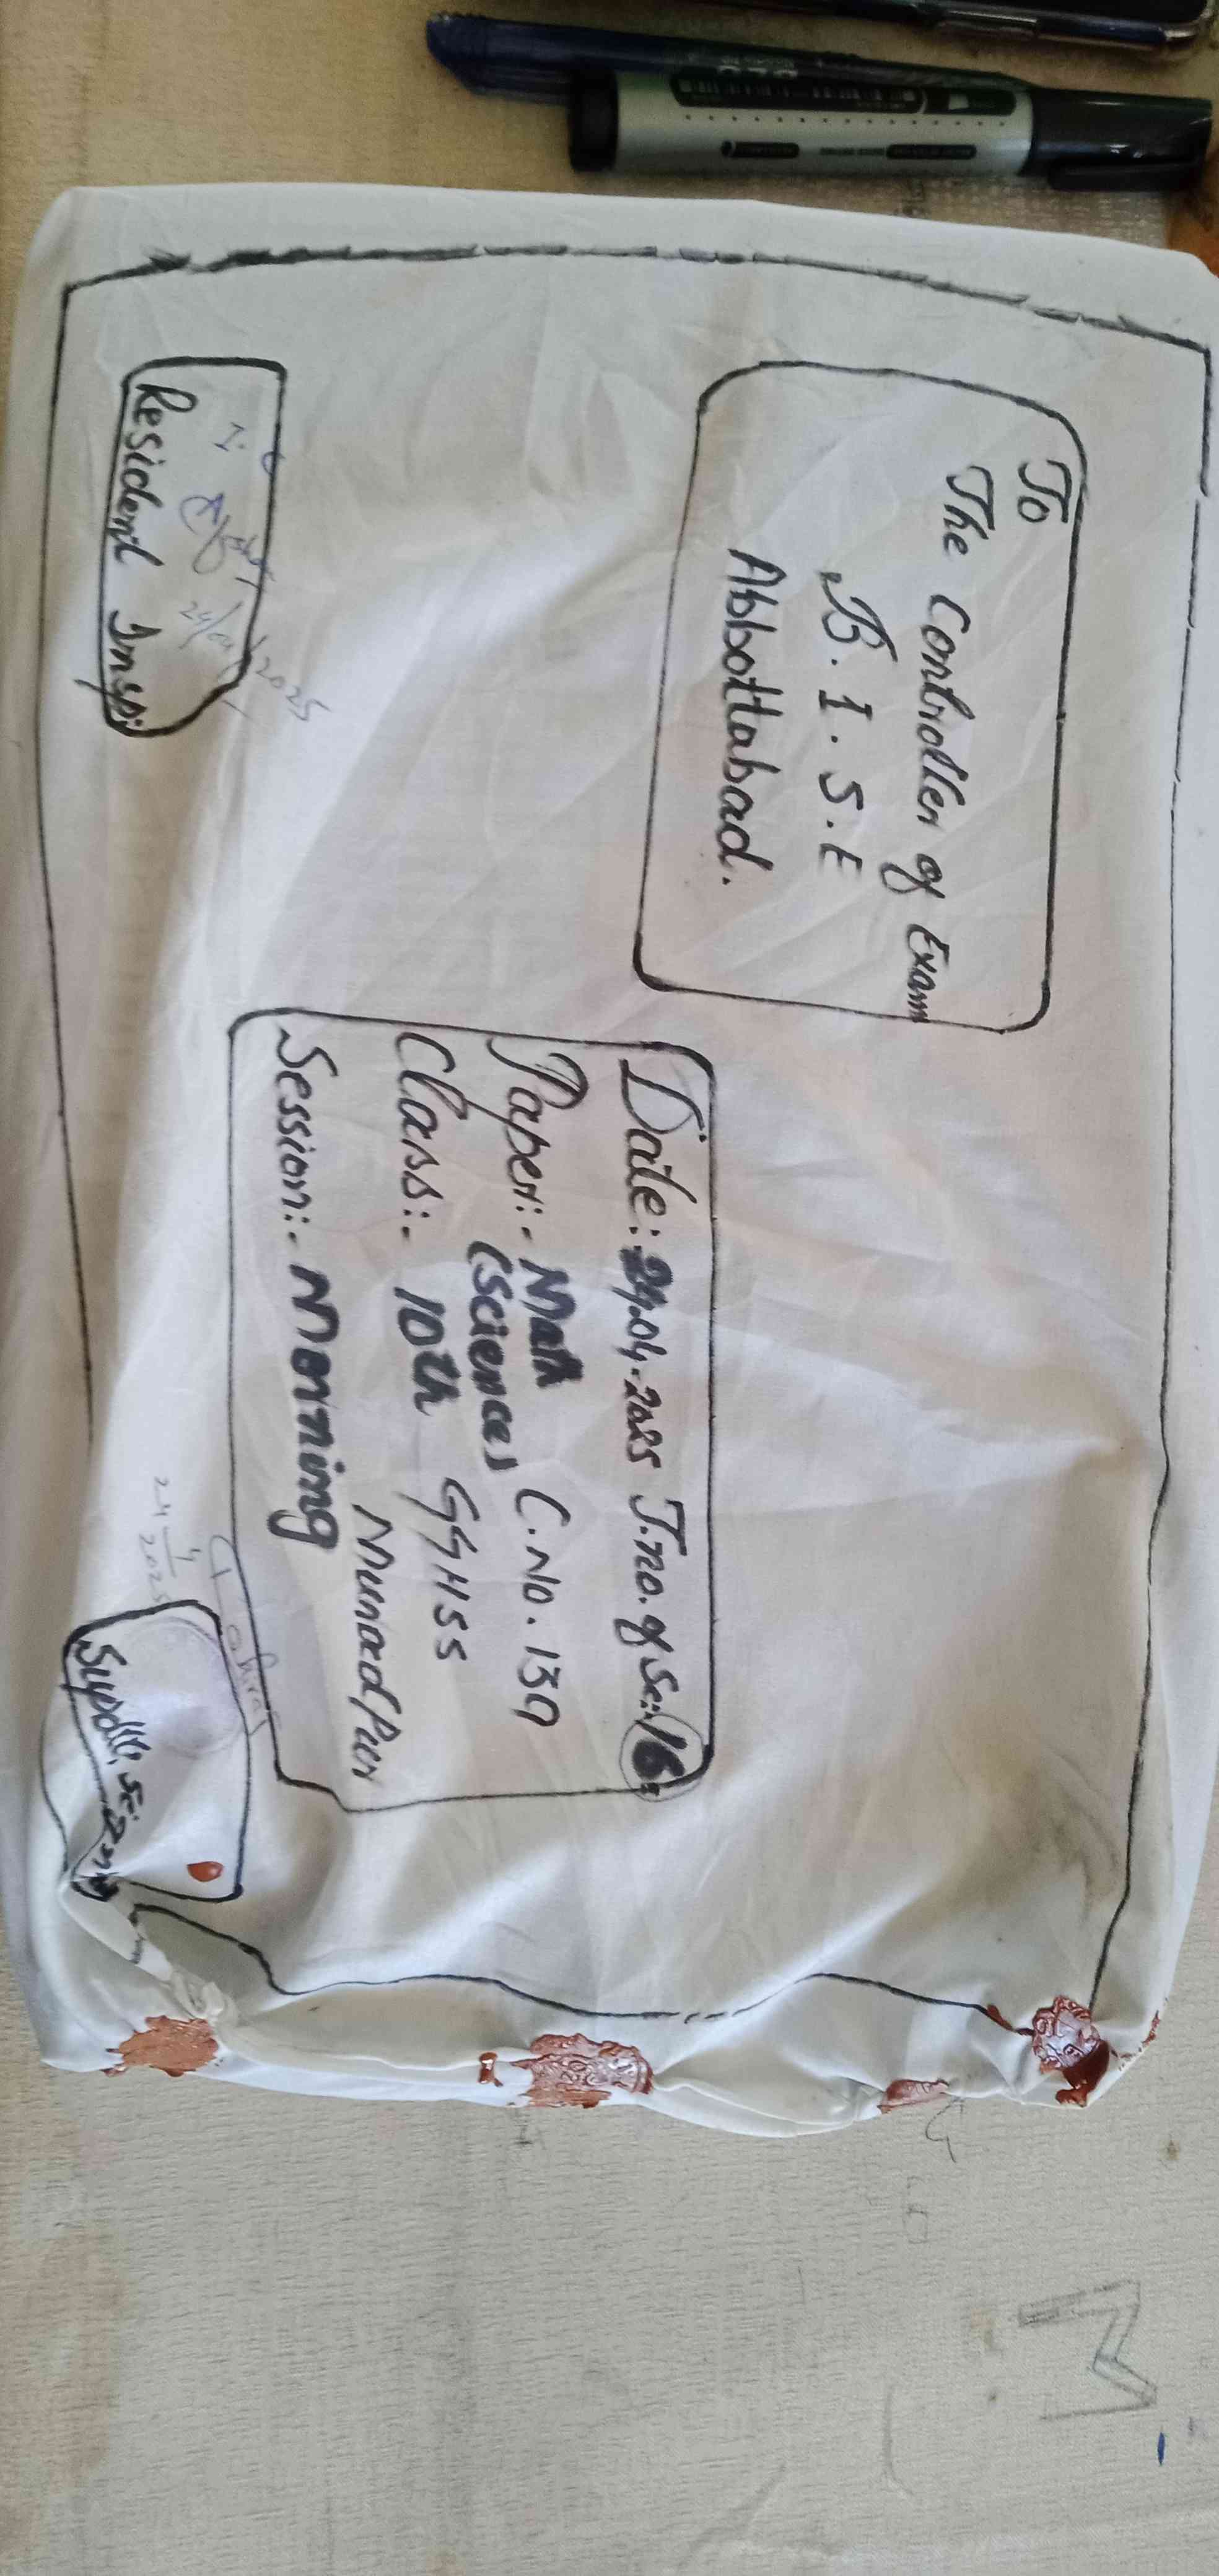 To
The Controller of Exam
B.I.S.E
Abbottabad.
Date: 24.04.2025 T.no. of Sc: 16
Paper:- Math C.No. 130
(Science)
Class:- 10th GGHSS
Murad Pur
Session:- Morning
24/04/2025
Resident Insp:
24/4/2025
Supdtt, Sign
M